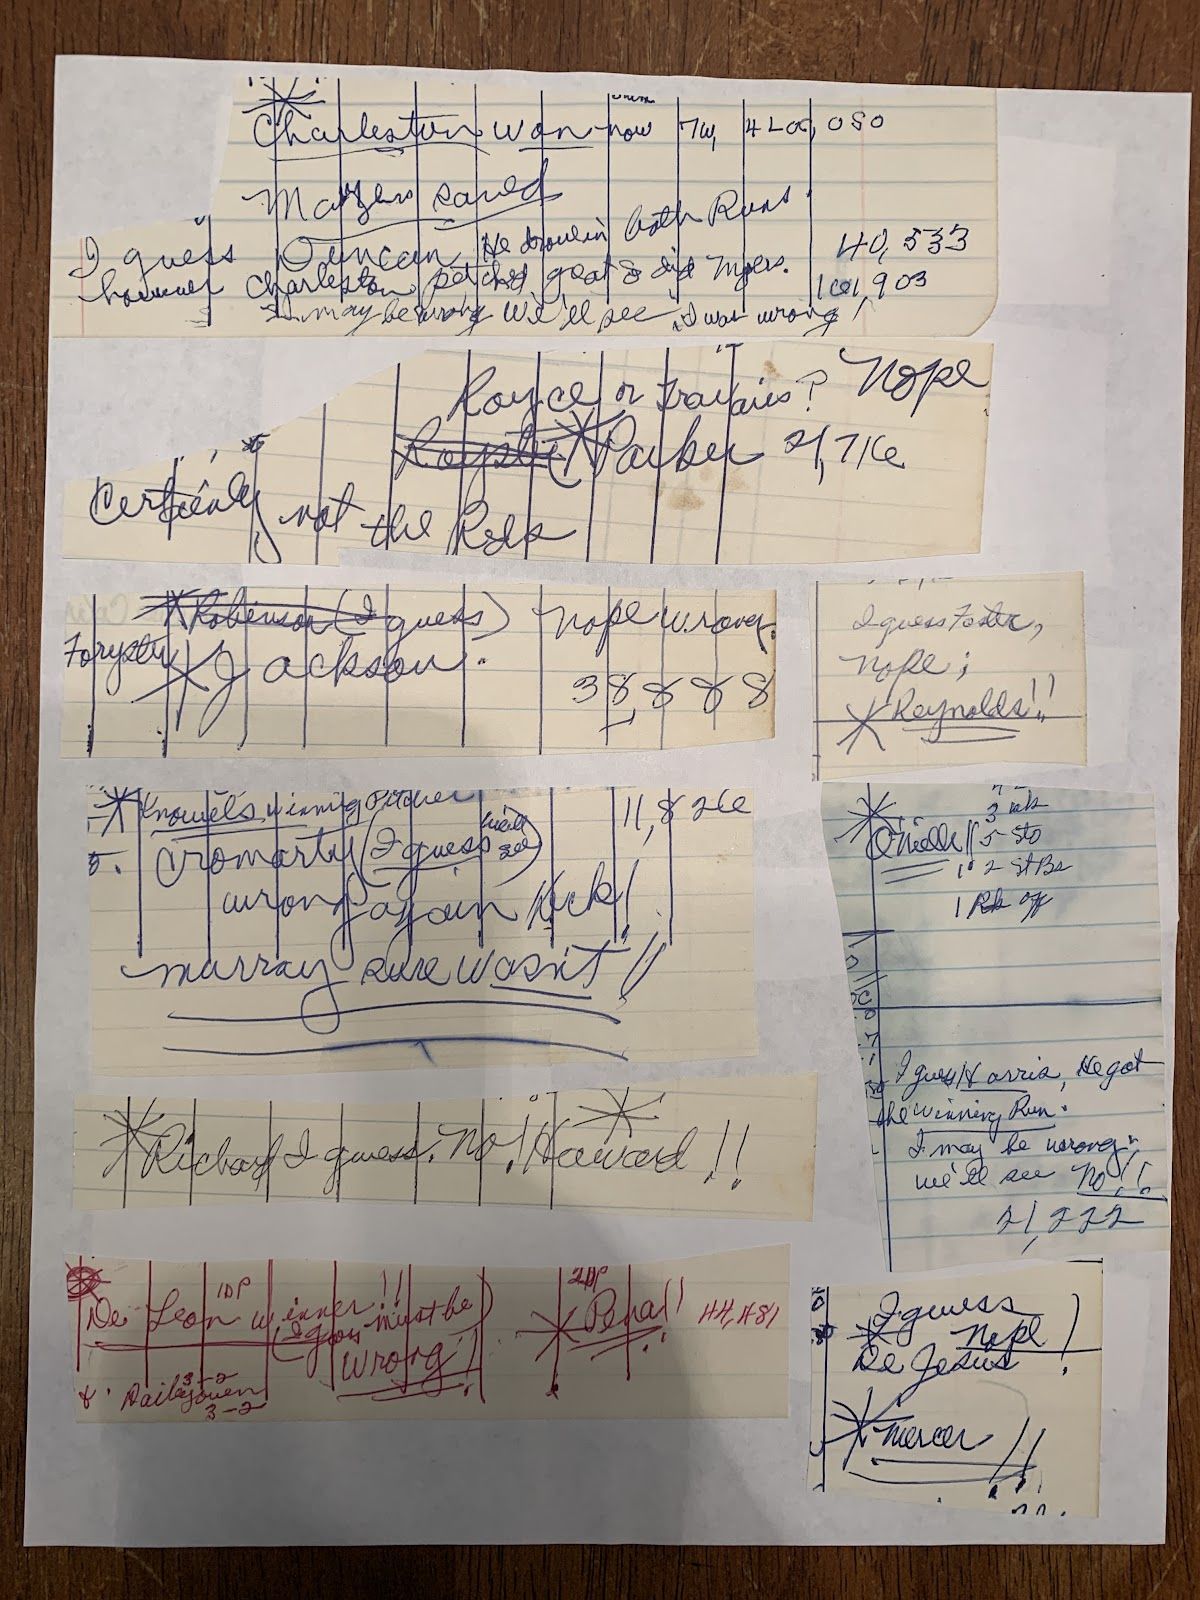 Charleston won now 7W, 4 Los, 080
Mayers saved
I guess Duncan He drove in both Runs
40,533
however Charleston pitched great & did Myers.
161,903
I may be wrong We'll see, I was wrong!
Royce or Travaries? Nope
Royster Parker 21,716
Certienly not the Rsks
Robinson (I guess) Nope Wrong.
Foryster Jackson.
38,888
I guess Foster,
Nope;
Reynolds!!
Knowels winning Pitcher 11,826
5. Cromarty (I guess we'll see)
wrong again Kick!
murray sure wasn't!!
3 wk
5 Sto
1. 2 St Bs
1 Pk off
I guess Harris, He got
the winning Run.
I may be wrong
we'll see No!!
21,222
Richard I guess. No! Howard!!
1DP 2DP
De Leon winner!! (I guess must be Pena!! 44,481
wrong!
3-2
3-2
I guess
Nope!
De Jesus
Mercer!!